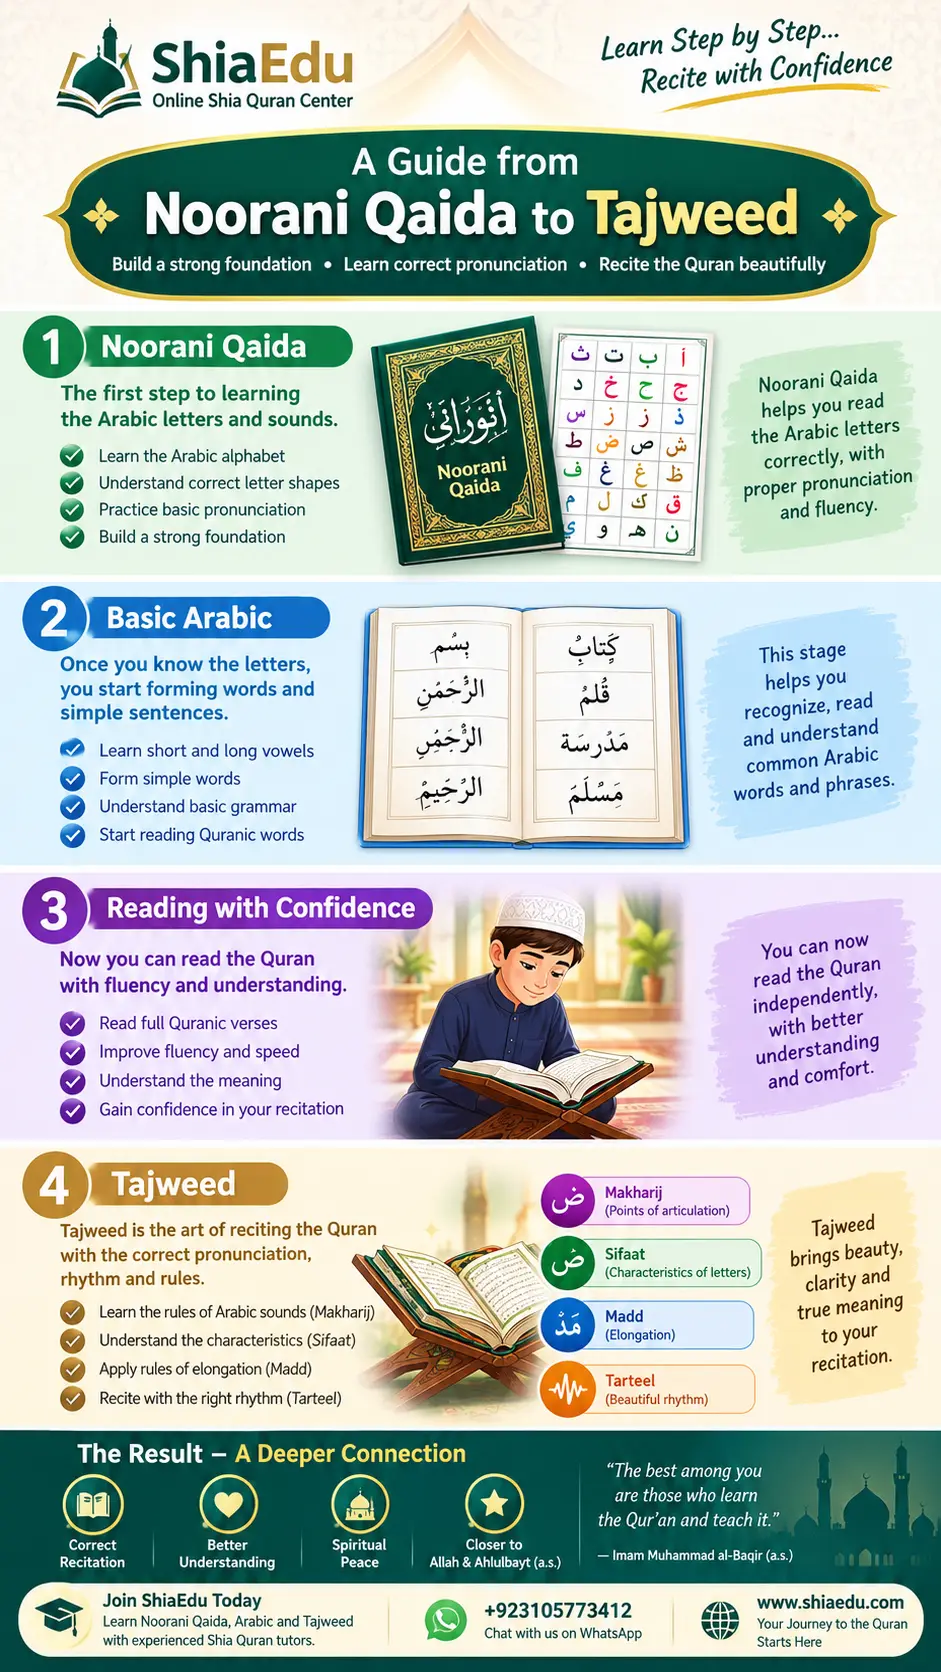 ShiaEdu
Online Shia Quran Center
Learn Step by Step...
Recite with Confidence
A Guide from
Noorani Qaida to Tajweed
Build a strong foundation • Learn correct pronunciation • Recite the Quran beautifully
1 Noorani Qaida
The first step to learning
the Arabic letters and sounds.
Learn the Arabic alphabet
Understand correct letter shapes
Practice basic pronunciation
Build a strong foundation
Noorani
Qaida
أ ب ت ث
ج ح خ د
ذ ز ز س
ش ص ض ط
ظ غ غ ف
ق ك ل م
ن هـ و ي
Noorani Qaida
helps you read
the Arabic letters
correctly, with
proper pronunciation
and fluency.
2 Basic Arabic
Once you know the letters,
you start forming words and
simple sentences.
Learn short and long vowels
Form simple words
Understand basic grammar
Start reading Quranic words
كَِتابُ
قُلمُ
مَدُرسَة
مَِسْلَمَ
بِسُم
الرَُّحَمُنِ
الرَُّجَمُنِ
الرُحِيمُِ
This stage
helps you
recognize, read
and understand
common Arabic
words and phrases.
3 Reading with Confidence
Now you can read the Quran
with fluency and understanding.
Read full Quranic verses
Improve fluency and speed
Understand the meaning
Gain confidence in your recitation
You can now
read the Quran
independently,
with better
understanding
and comfort.
4 Tajweed
Tajweed is the art of reciting the Quran
with the correct pronunciation,
rhythm and rules.
Learn the rules of Arabic sounds (Makharij)
Understand the characteristics (Sifaat)
Apply rules of elongation (Madd)
Recite with the right rhythm (Tarteel)
ض Makharij
(Points of articulation)
صُ Sifaat
(Characteristics of letters)
مَدْ Madd
(Elongation)
Tarteel
(Beautiful rhythm)
Tajweed
brings beauty,
clarity and
true meaning
to your
recitation.
The Result – A Deeper Connection
Correct
Recitation
Better
Understanding
Spiritual
Peace
Closer to
Allah & Ahlulbayt (a.s.)
“The best among you
are those who learn
the Qur’an and teach it.”
— Imam Muhammad al-Baqir (a.s.)
Join ShiaEdu Today
Learn Noorani Qaida, Arabic and Tajweed
with experienced Shia Quran tutors.
+923105773412
Chat with us on WhatsApp
www.shiaedu.com
Your Journey to the Quran
Starts Here